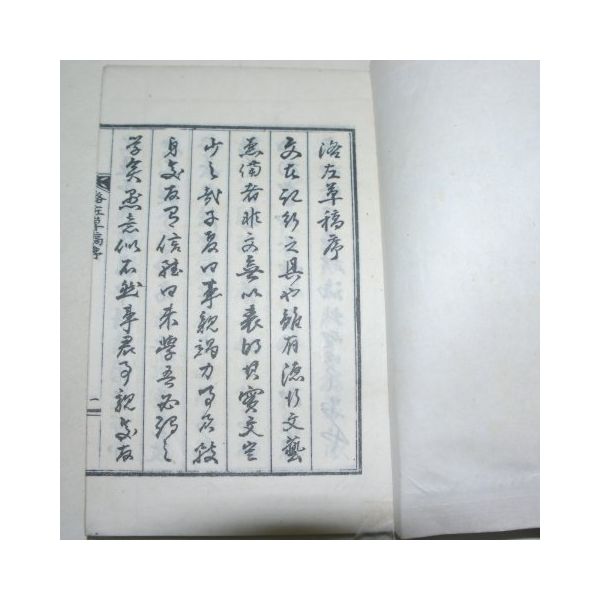 洛左草稿序
文者記行之具也雖有德行文藝
悉備者非文無以表明其實文豈
少之哉子夏曰事親竭力事君致
身交友有信雖曰未學吾必謂之
学矣愚意似不然事君事親交友
洛左草稿序
一